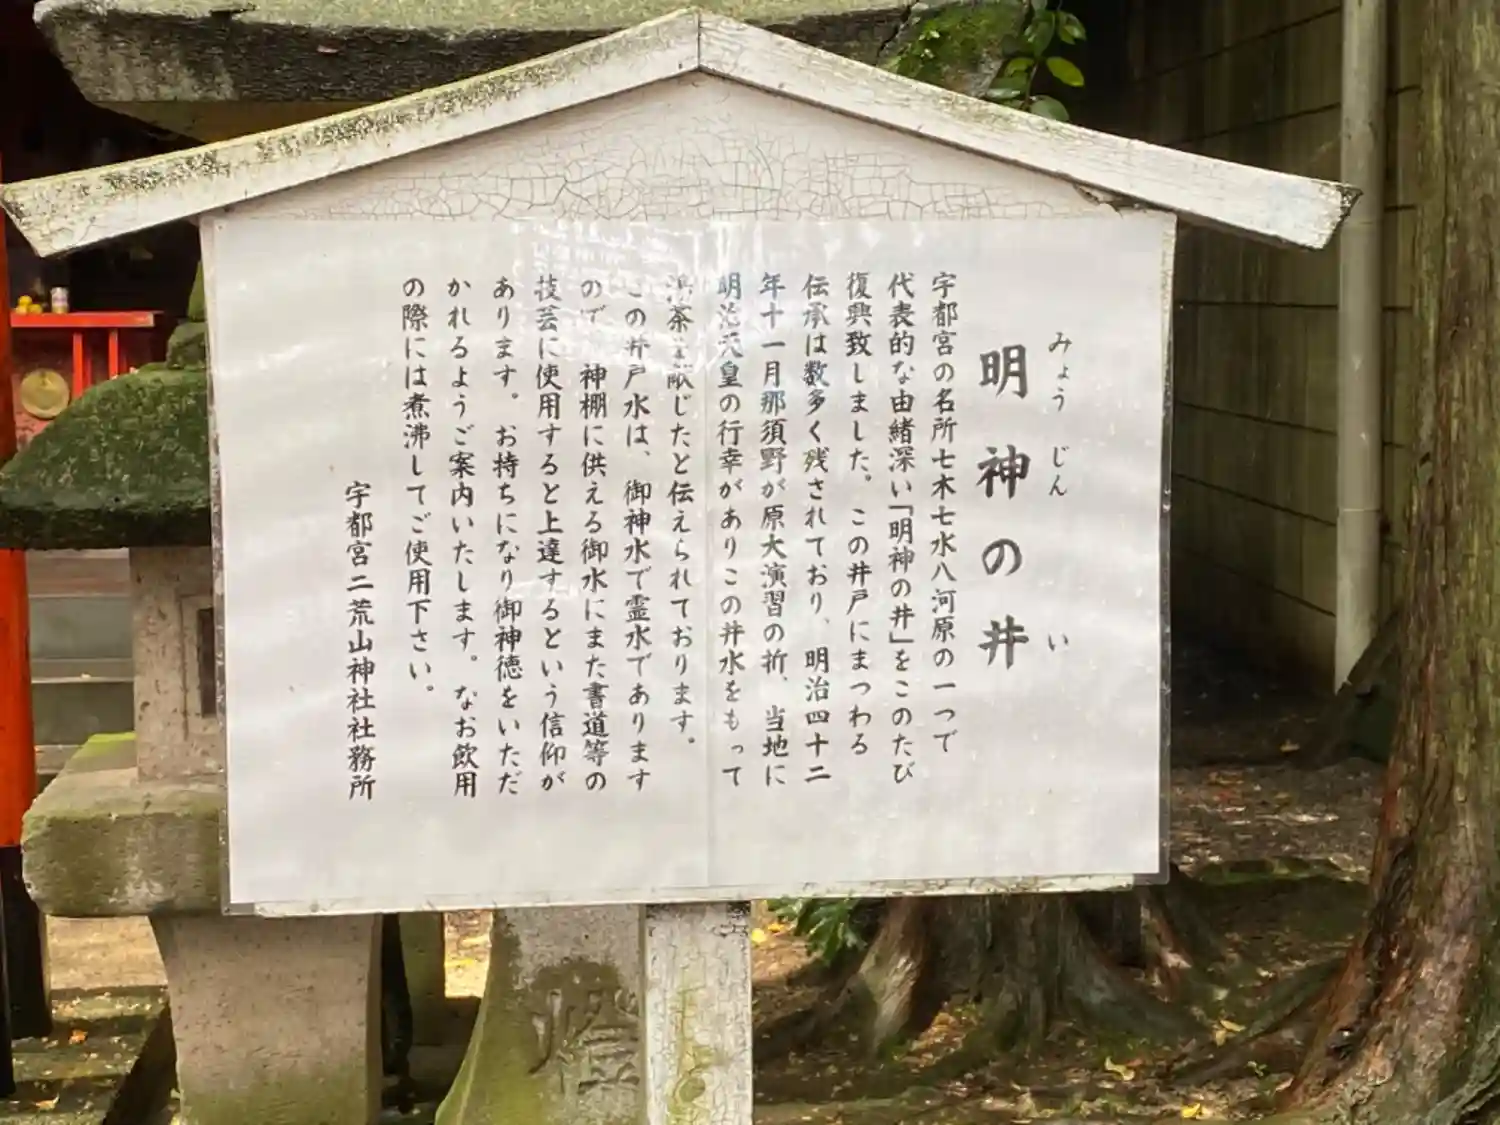 みょう じん い
明神の井
宇都宮の名所七木七水八河原の一つで
代表的な由緒深い「明神の井」をこのたび
復興致しました。この井戸にまつわる
伝承は数多く残されており、明治四十二
年十一月那須野が原大演習の折、当地に
明治天皇の行幸がありこの井水をもって
湯茶を献じたと伝えられております。
この井戸水は、御神水で霊水であります
ので、神棚に供える御水にまた書道等の
技芸に使用すると上達するという信仰が
あります。お持ちになり御神徳をいただ
かれるようご案内いたします。なお飲用
の際には煮沸してご使用下さい。
宇都宮二荒山神社社務所